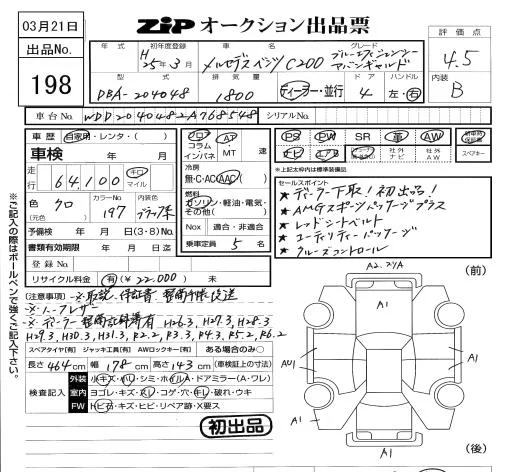 03月21日
ZIP オークション出品票
出品No.
198
年式
初年度登録
車名
グレード
H25年3月
メルセデスベンツ C200
ブルーエフィシェンシー
アバンギャルド
評価点
4.5
内装
B
型式
排気量
ドア
ハンドル
DBA-204048
1800
ディーラー・並行
4
左・右
車台No.
WDD2040482A768548
シリアルNo.
車歴
自家用・レンタ・( )
車検
年 月
走行
64,100
キロ
マイル
色
クロ
(元色 )
カラーNo.
197
内装色
予備検付
年 月 日(3・8)No.
書類有効期限
年 月 日迄
登録No.
リサイクル料金
有(¥22.000) 未
フロア
コラム
インパネ
AT
・MT
速
冷房
無・C・AC・AAC( )
燃料
ガソリン・軽油・電気・
その他( )
Nox
適合・非適合
乗車定員
5
名
PS
PW
SR
革
AW
ナビ
エアB
社外
ナビ
社外
AW
スペアキー
※上記太枠内は標準装備品
セールスポイント
★ディーラー下取!初出品!
★AMGスポーツパッケージプラス
★レッドシートベルト
★ユーティリティーパッケージ
★クルーズコントロール
(注意事項)
※取説、保証書、整備手帳後送
※ディーラー整備記録簿有 H26.3, H27.3, H28.3
H29.3, H30.3, H31.3, R2.2, R3.3, R4.3, R5.2, R6.2
スペアタイヤ[有] ジャッキ工具[有] AWロックキー[有] ある場合のみ○
長さ464cm 幅178cm 高さ143cm (車検証上の寸法)
検査記入
外装
小キズ・小ヘコミ・シミ・ホイルA・ドアミラー(A・ワレ)
室内
ヨゴレ・キズ・スレ・コゲ・穴・キレ・破れ・ウキ
FW
トビ石・キズ・ヒビ・リペア跡・X要ス
初出品
※ご記入の際はボールペンで強くご記入下さい。
(前)
A1
AU1
A1
A1
A1
A1
(後)